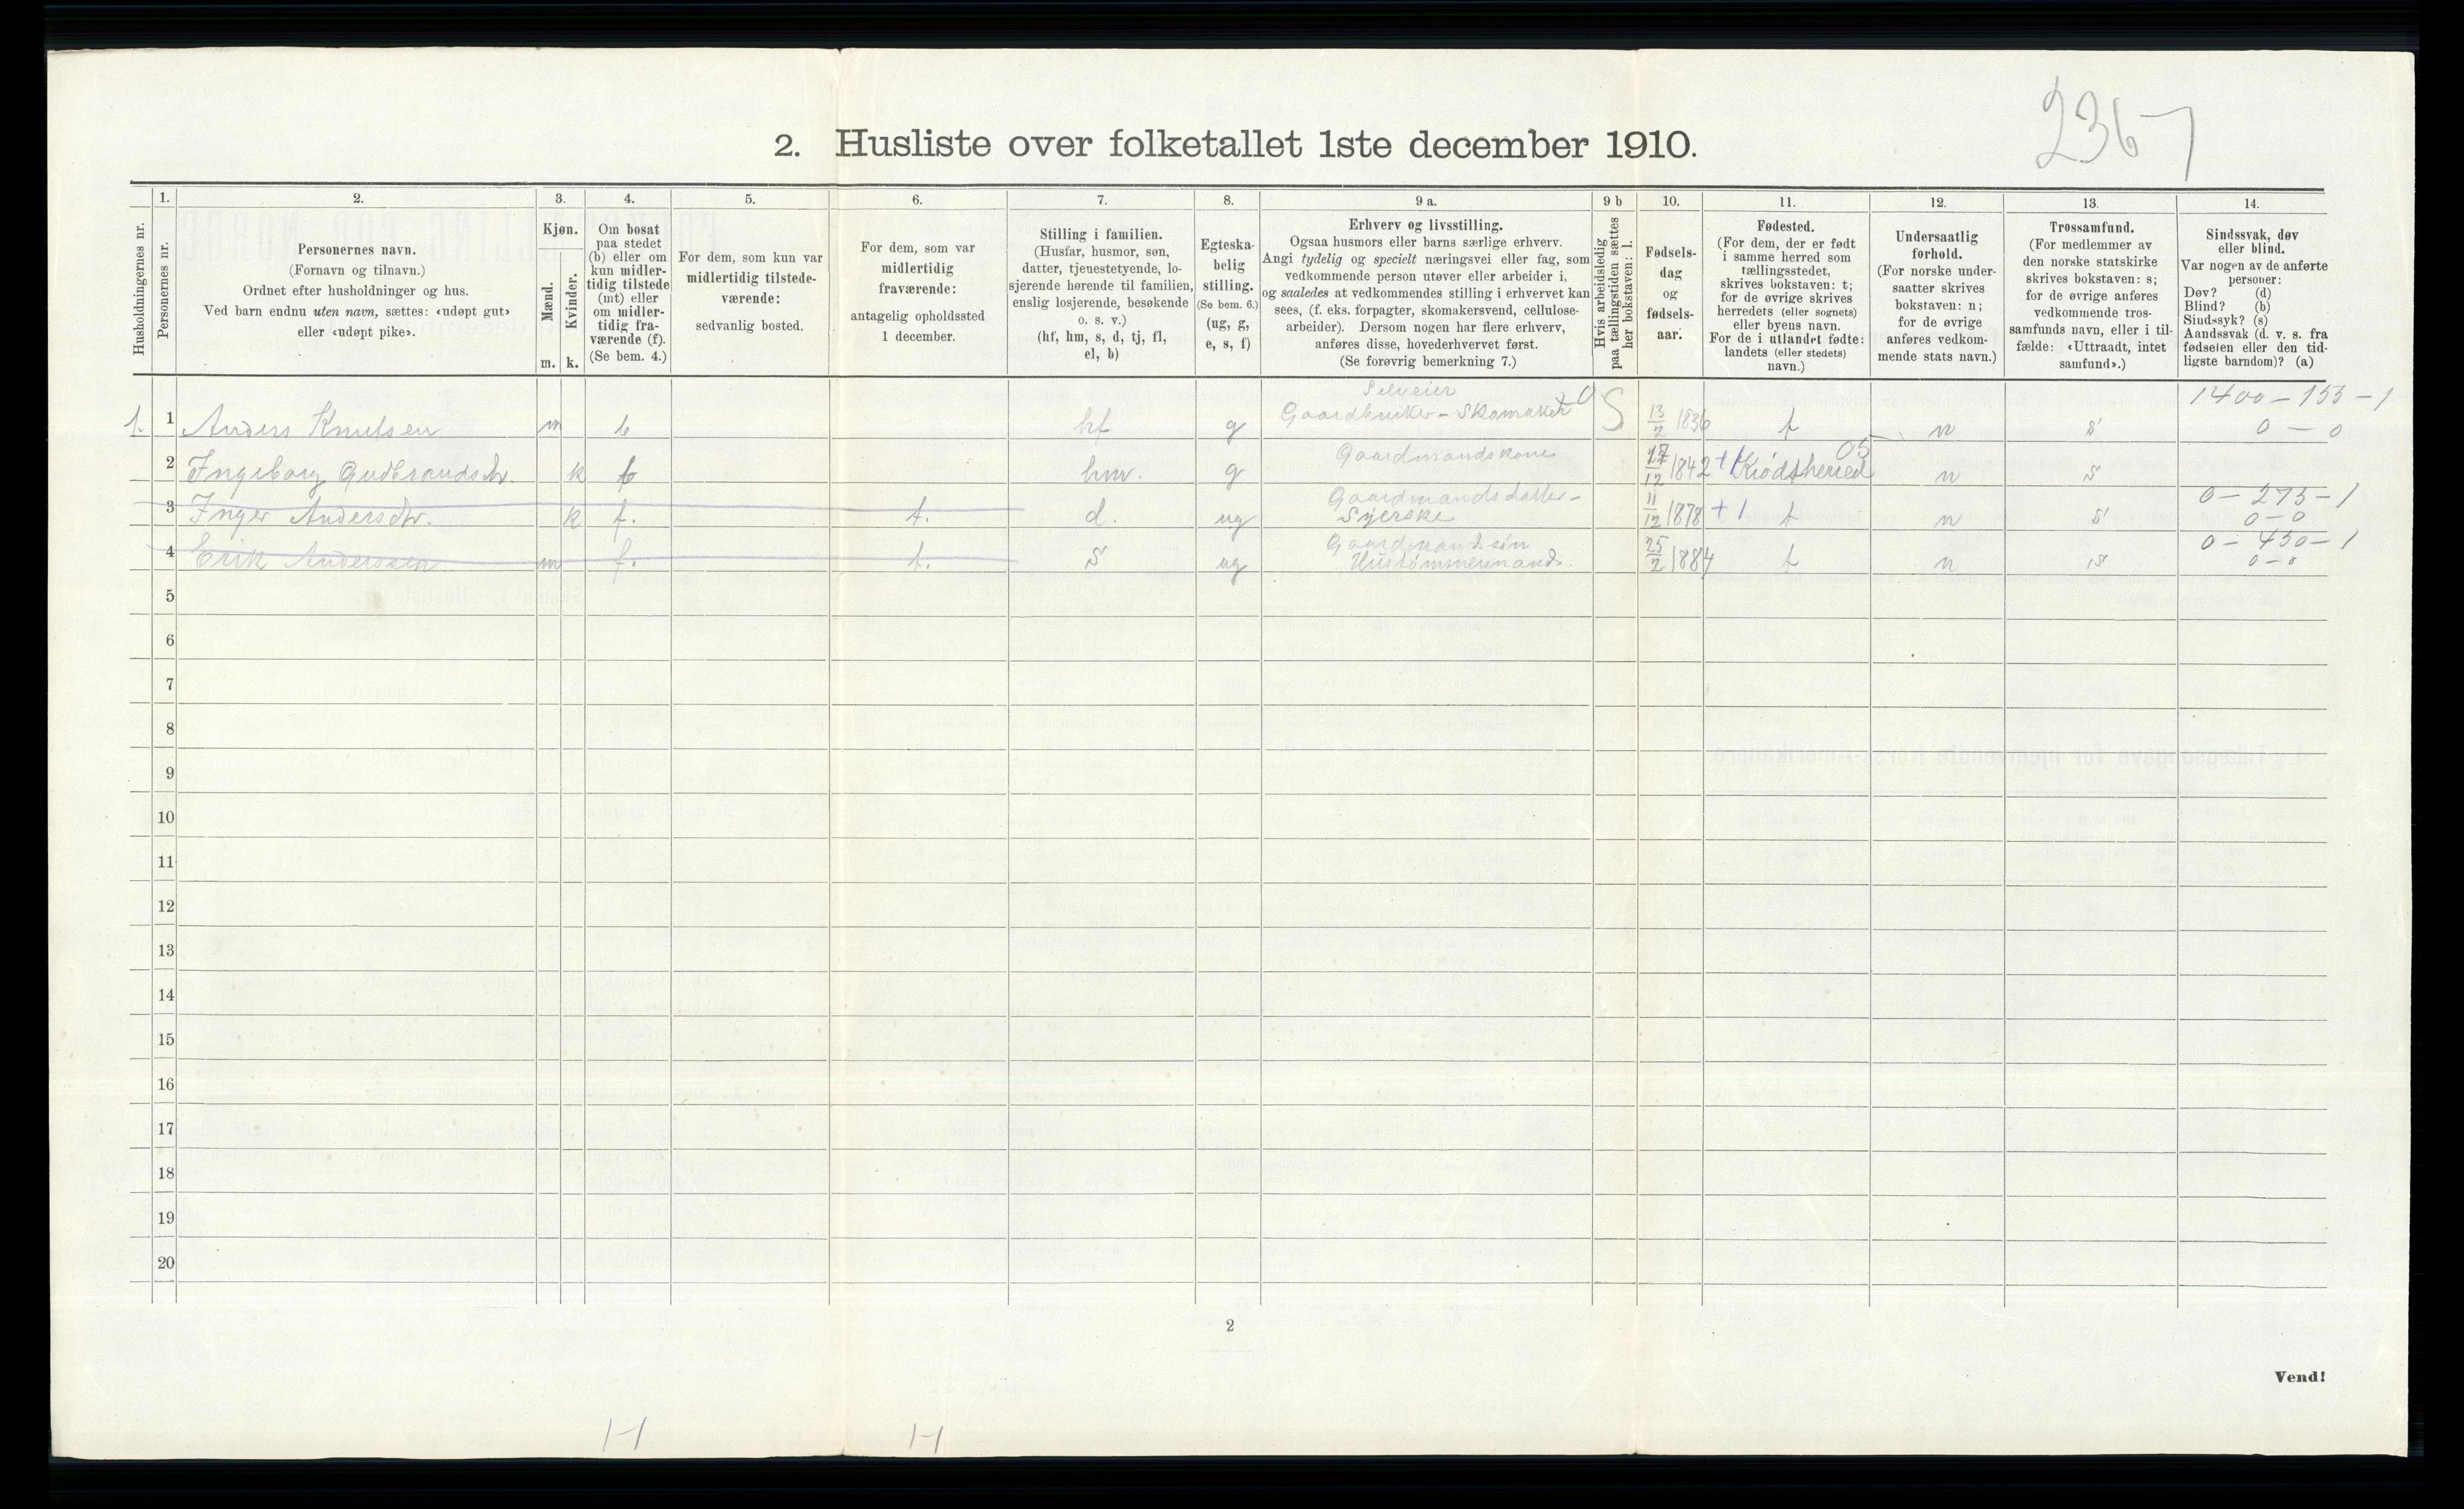 2367
2. Husliste over folketallet 1ste december 1910.
Husholdningernes nr.
1.
Personernes nr.
2.
Personernes navn.
(Fornavn og tilnavn.)
Ordnet efter husholdninger og hus.
Ved barn endnu uten navn, sættes: «udøpt gut»
eller «udøpt pike».
3.
Kjøn.
Mænd.
Kvinder.
m. k.
4.
Om bosat
paa stedet
(b) eller om
kun midler-
tidig tilstede
(mt) eller
om midler-
tidig fra-
værende (f).
(Se bem. 4.)
5.
For dem, som kun var
midlertidig tilstede-
værende:
sedvanlig bosted.
6.
For dem, som var
midlertidig
fraværende:
antagelig opholdssted
1 december.
7.
Stilling i familien.
(Husfar, husmor, søn,
datter, tjenestetyende, lo-
sjerende hørende til familien,
enslig losjerende, besøkende
o. s. v.)
(hf, hm, s, d, tj, fl,
el, b)
8.
Egteska-
belig
stilling.
(Se bem. 6.)
(ug, g,
e, s, f)
9 a.
Erhverv og livsstilling.
Ogsaa husmors eller barns særlige erhverv.
Angi tydelig og specielt næringsvei eller fag, som
vedkommende person utøver eller arbeider i,
og saaledes at vedkommendes stilling i erhvervet kan
sees, (f. eks. forpagter, skomakersvend, cellulose-
arbeider). Dersom nogen har flere erhverv,
anføres disse, hovederhvervet først.
(Se forøvrig bemerkning 7.)
9 b
Hvis arbeidsledig
paa tællingstiden sættes
her bokstaven: l.
10.
Fødsels-
dag
og
fødsels-
aar.
11.
Fødested.
(For dem, der er født
i samme herred som
tællingsstedet,
skrives bokstaven: t;
for de øvrige skrives
herredets (eller sognets)
eller byens navn.
For de i utlandet fødte:
landets (eller stedets)
navn.)
12.
Undersaatlig
forhold.
(For norske under-
saatter skrives
bokstaven: n;
for de øvrige
anføres vedkom-
mende stats navn.)
13.
Trossamfund.
(For medlemmer av
den norske statskirke
skrives bokstaven: s;
for de øvrige anføres
vedkommende tros-
samfunds navn, eller i til-
fælde: «Uttraadt, intet
samfund».)
14.
Sindssvak, døv
eller blind.
Var nogen av de anførte
personer:
Døv? (d)
Blind? (b)
Sindssyk? (s)
Aandssvak (d. v. s. fra
fødselen eller den tid-
ligste barndom)? (a)
Selveier 1400-155-1
1. 1 Anders Knutsen m b hf g Gaardbruker - Skomaker S 13/2 1836 t n s 0 - 0
2 Ingeborg Gudbrandsdtr. k b hm. g Gaardmandskone 17/12 1842 +1 Krødsherred 05 n s
Gaardmandsdatter - 0-275-1
3 Inger Andersdtr. k f. t. d. ug Syerske 11/12 1878 +1 t n s 0-0
Gaardmandsøn 0-450-1
4 Erik Anderssen m f. t. s ug Hustømmermand. 25/2 1884 t n s 0-0
5
6
7
8
9
10
11
12
13
14
15
16
17
18
19
20
2
Vend!
1-1 1-1